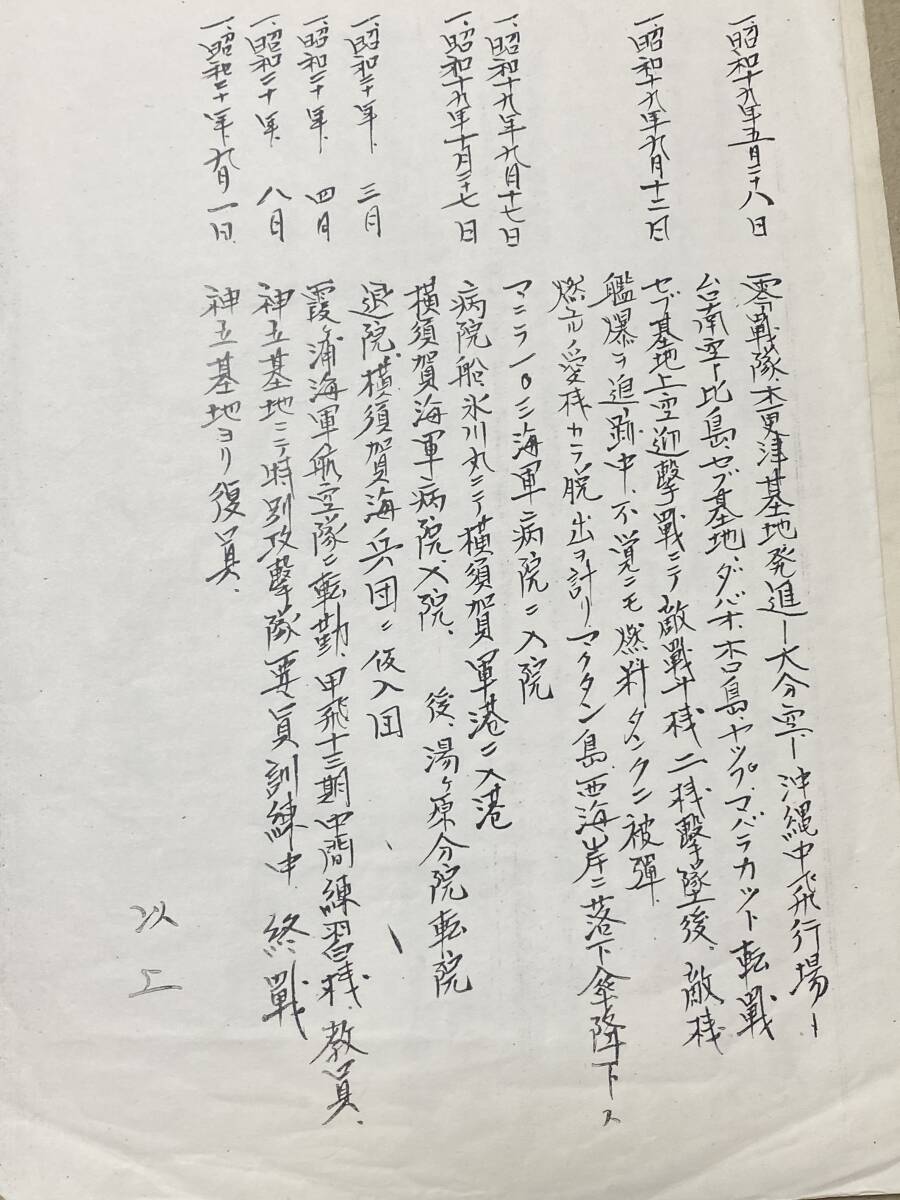 一、昭和十九年五月二十八日 零戰隊、木更津基地発進ー大分空ー沖縄中飛行場ー
台南空ー比島、セブ基地、ダバオ、ホロ島、ヤップ、マバラカット転戰
一、昭和十九年九月十二日 セブ基地上空迎撃戰ニテ敵戰斗桟二桟撃墜後、敵桟
艦爆ヲ追跡中、不覚ニモ燃料タンクニ被彈
燃エル愛桟カラ脱出ヲ計リ、マクタン島西海岸ニ落下傘降下ス
一、昭和十九年九月十七日 マニラ一〇三海軍病院ニ入院
一、昭和十九年十月二十七日 病院船氷川丸ニテ横須賀軍港ニ入港
横須賀海軍病院、入院、後、湯ヶ原分院転院
一、昭和二十年、三月 退院、横須賀海兵団ニ仮入団
一、昭和二十年、四月 霞ヶ浦海軍航空隊ニ転勤、甲飛十三期中間練習桟、教員、
一、昭和二十年、八月 神立基地ニテ特別攻撃隊要員訓練中、終戰
一、昭和二十年、九月一日、 神立基地ヨリ復員、
以上